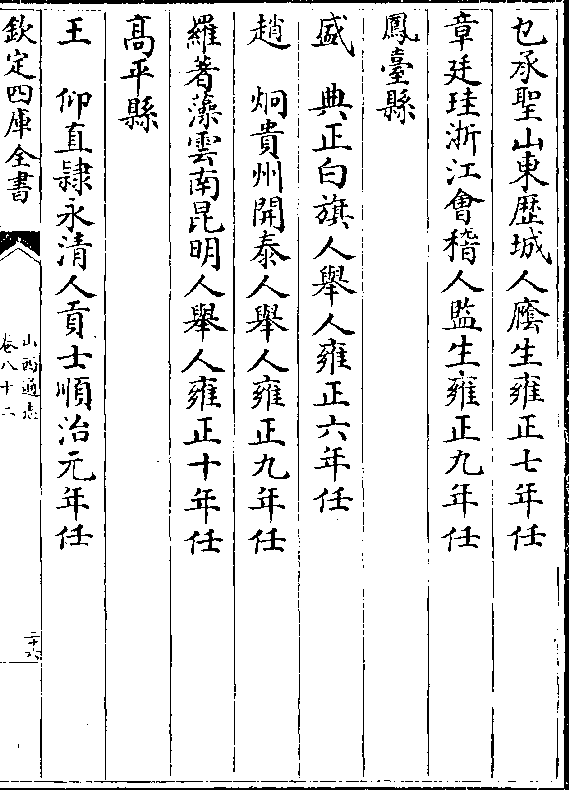 乜承聖山東歴城人廕生雍正七年任
章廷珪浙江會稽人監生雍正九年任
鳳臺縣
盛　典正白旗人舉人雍正六年任
趙　炯貴州開泰人舉人雍正九年任
羅著藻雲南昆明人舉人雍正十年任
髙平縣
王　仰直隷永清人貢士順治元年任
欽定四庫全書
山西通志
卷八十二
二十六